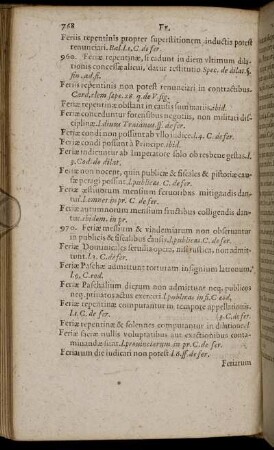 768 Fe.
Feriis repentinis propter superstitionem inductis potest
renunciari. Bal. l. 1. C. de fer.
960. Feriæ repentinæ, si cadunt in diem vltimum dila-
tionis concessæ alicui, datur restitutio. Spec. de dilat. §.
fin. ad fi.
Feriis repentinis non potest renunciari in contractibus.
Feriæ repentinæ obstant in causis summariis. ibid.
Feriæ conceduntur forensibus negotiis, non militari di-
sciplinæ. l. diuus Traianus. ff. de fer.
Feriæ condi non possunt ab vllo iudice. l. 4. C. de fer.
Feriæ condi possunt à Principe. ibid.
Feriæ indicuntur ab Imperatore solo ob res bene gestas. l.
9. Cod. de dilat.
Feriæ non nocent, quin publicæ & fiscales & pistoriæ cau-
sæ peragi possint. l. publicas. C. de fer.
Feriæ æstiuorum mensium feruoribus mitigandis dan-
tur. in pr. C. de fer.
Feriæ autumnorum mensium fructibus colligendis dan-
tur. ibidem. in pr.
970. Feriæ messium & vindemiarum non obseruantur
in publicis & fiscalibus causis. l. publicas. C. de fer.
Feriæ Dominicales seruilia opera, nisi rustica, non admit-
tunt. l. 3. C. de fer.
Feriæ Paschæ admittunt torturam insignium latronum.
l. 9. C. eod.
Feriæ Paschalium dierum non admittunt neq; publicos
neq; priuatos actus exerceri. l. publicas in fi. C. eod.
Feriæ repentinæ computantur in tempore appellationis.
l. 1. C. de fer. [3. C. de fer.
Feriæ repentinæ & solennes computantur in dilutione. l
Feriæ sacræ nullis voluptatibus aut exactionibus conta-
minandæ sunt. in pr. C. de fer.
Feriarum die iudicari non potest. l. 6. ff. de fer.
Feriatum